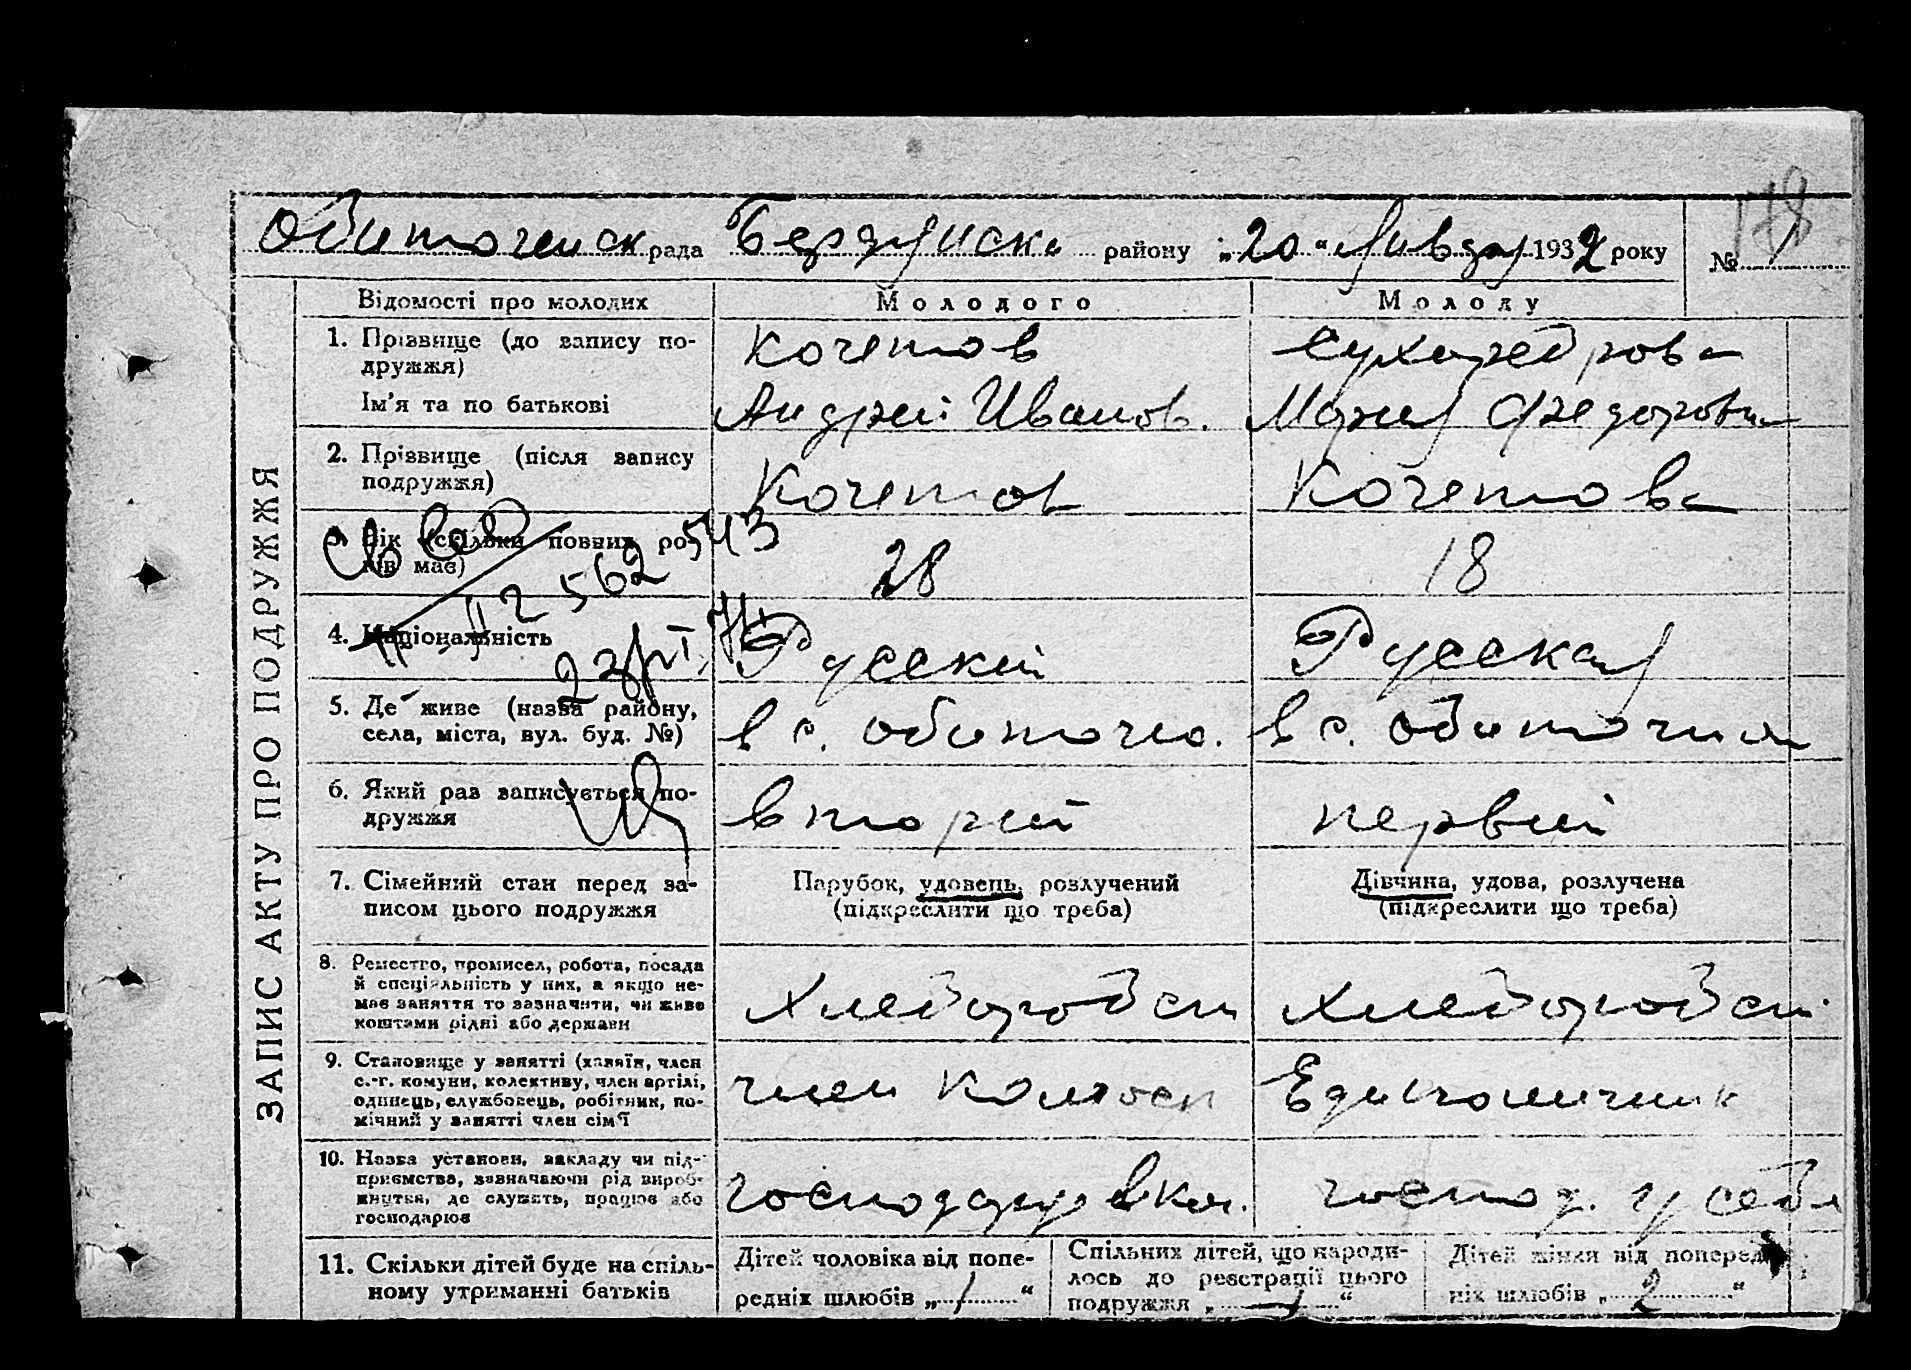 Обиточенск рада Бердянско району „20“ Января 1932 року № 1
178
ЗАПИС АКТУ ПРО ПОДРУЖЖЯ
Відомості про молодих Молодого Молоду
1. Прізвище (до запису по-
дружжя) Кочетов Сухореброва
Ім'я та по батькові Андрей Иванов. Мария Федоровна
2. Прізвище (після запису
подружжя) Кочетов Кочетова
3. Вік (скільки повних ро-
ків має) 28 18
562543
4. Національність Русский Русская
5. Де живе (назва району,
села, міста, вул. буд. №) в с. Обиточно. в с. Обиточная
6. Який раз записується по-
дружжя вторий первий
7. Сімейний стан перед за-
писом цього подружжя
Парубок, удовець, розлучений
(підкреслити що треба)
Дівчина, удова, розлучена
(підкреслити що треба)
8. Ремество, промисел, робота, посада
й спеціяльність у них, а якщо не-
має заняття то зазначити, чи живе
коштами рідні або держави
Хлеборобст Хлеборобст
9. Становище у занятті (хазяїн, член
с.-г. комуни, колективу, член артілі,
одинець, службовець, робітник, по-
мічний у занятті член сім'ї
член колхосп Единоличник
10. Назва установи, закладу чи під-
приємства, зазначаючи рід вироб-
ництва, де служить, працює або
господарює
господарув кол. господ. у себя
11. Скільки дітей буде на спіль-
ному утриманні батьків
Дітей чоловіка від попе-
редніх шлюбів „ 1 “
Спільних дітей, що народи-
лось до реєстрації цього
подружжя „ — “
Дітей жінки від поперед
ніх шлюбів „ 2 “